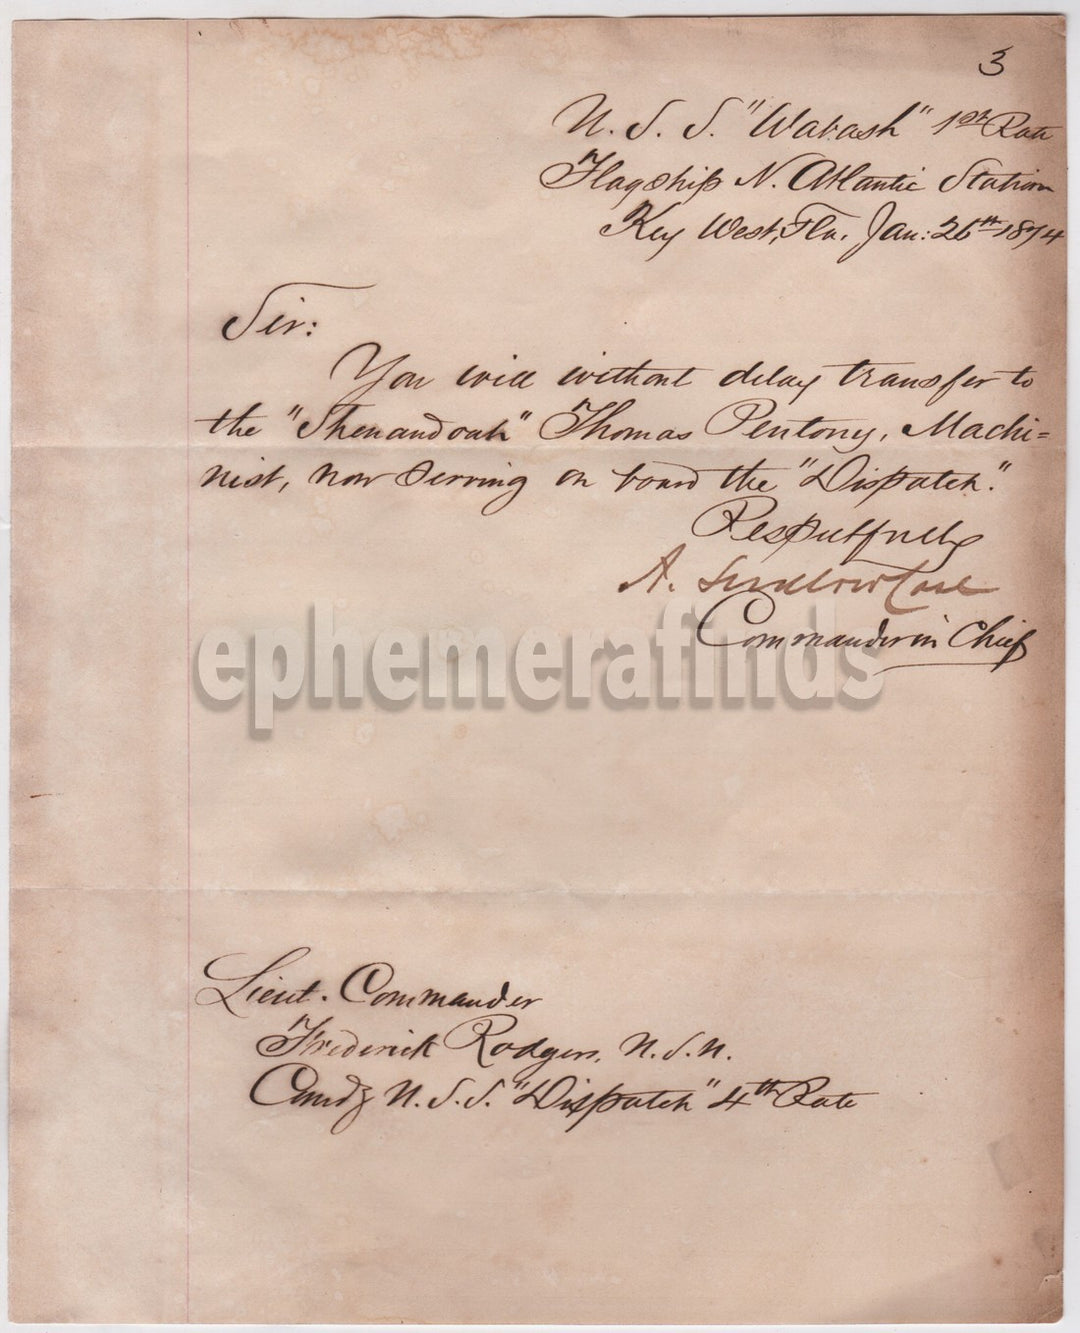 3
U. S. S. "Wabash" 1st Rate
Flagship N. Atlantic Station
Key West, Fla. Jan: 26th 1874
Sir:
You will without delay transfer to
the "Shenandoah" Thomas Pentony, Machi=
nist, now serving on board the "Dispatch."
Respectfully
A. Ludlow Case
Commander in Chief
ephemerafinds
Lieut. Commander
Frederick Rodgers, U.S.N.
Comdg U.S.S. "Dispatch" 4th Rate